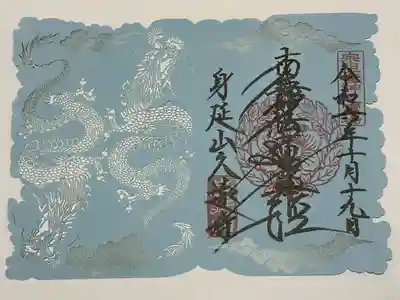 令和六年十月十九日
南無妙法蓮華経
身延山久遠寺